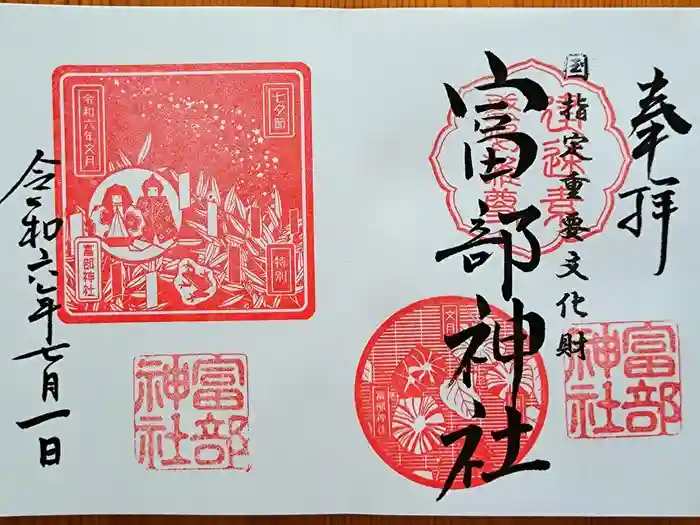 奉拝
国指定重要文化財
富部神社
富部
神社
文月
富部神社
七夕節
令和六年文月
特別
富部神社
富部
神社
令和六年七月一日